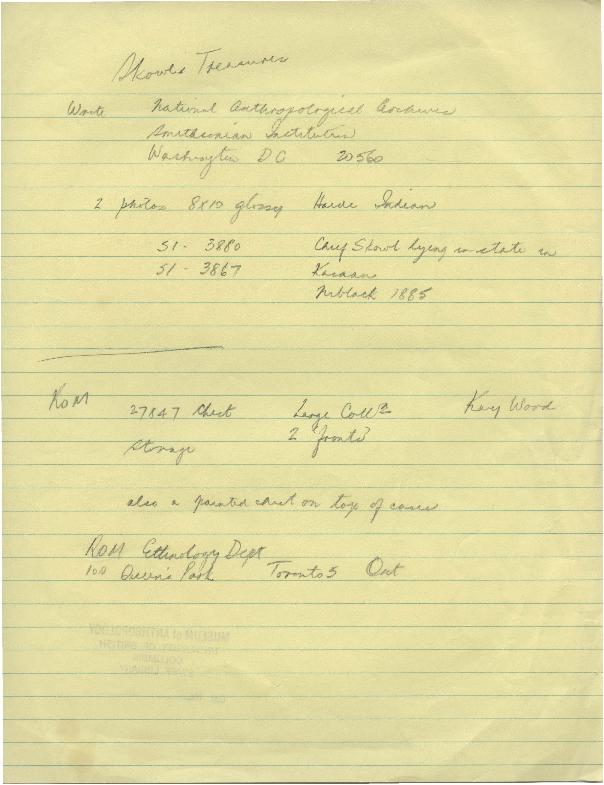 Skowl's Treasures
Write National Anthropological Archives
Smithsonian Institution
Washington DC 20560
2 photos 8x10 glossy Haida Indian
SI - 3880 Chief Skowl lying in state in
SI - 3867 Kasaan
Niblack 1885
ROM
27847 Chest Large Coll<sup>n</sup> Kay Wood
storage 2 'fronts'
also a painted chest on top of cases
ROM Ethnology Dept
100 Queen's Park Toronto 5 Ont
MUSEUM of ANTHROPOLOGY
UNIVERSITY OF BRITISH
COLUMBIA
LIBRARY